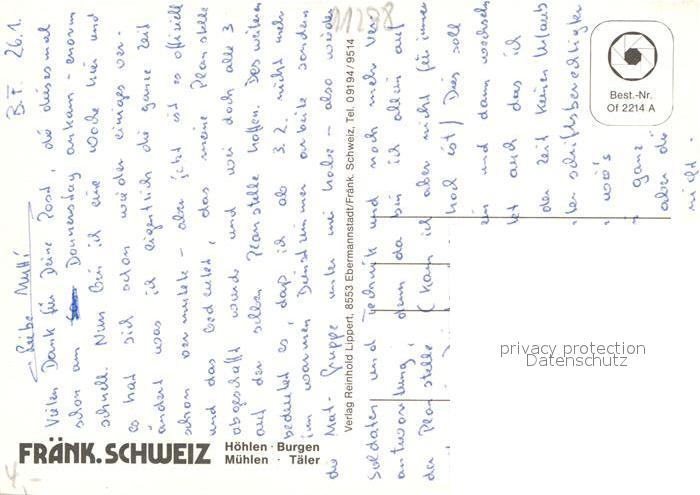 B.F. 26.1.
Liebe Mutti
Vielen Dank für Deine Post, die diesesmal
schon am Donnerstag ankam - enorm
schnell. Nun bin ich eine Woche hier und
es hat sich schon wieder einiges ver-
ändert was ich eigentlich die ganze Zeit
schon vermutete - aber jetzt ist es offiziell
und das bedeutet, das meine Planstelle
abgeschafft wurde und wir doch alle 3
auf der selben Planstelle hoffen. Des weiteren
bedeutet es, daß ich ab 3.2. nicht mehr
im warmen Dienstzimmer arbeite sondern
die Mat-Gruppe unter mir habe - also wieder
Soldaten und Technik und noch mehr Ver-
antwortung, denn da bin ich allein auf
der Planstelle (kann ich aber nicht für immer
hod ist) Dies soll
ein und dann wechseln
tet auch das ich
der Zeit keinen Urlaub
terschriftsberechtigter
wär's
ganz
aber die
nicht.
11288
Best.-Nr.
Of 2214 A
Verlag Reinhold Lippert, 8553 Ebermannstadt/Fränk. Schweiz, Tel. 09194/9514
privacy protection
Datenschutz
FRÄNK. SCHWEIZ
Höhlen · Burgen
Mühlen · Täler
4,-